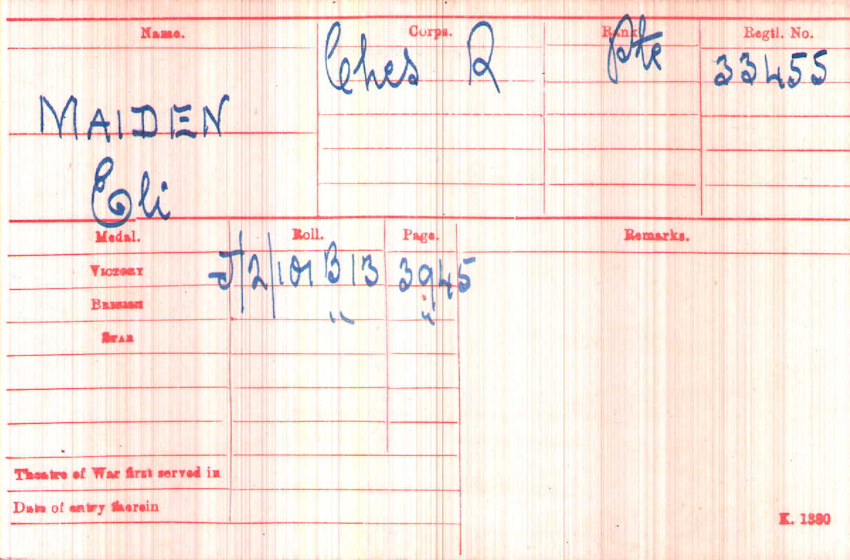 Name. Corps. Rank Regtl. No.
Ches R Pte 33455
MAIDEN
Eli
Medal. Roll. Page. Remarks.
VICTORY J/2/101 B 13 3945
BRITISH " "
STAR
Theatre of War first served in
Date of entry therein
K. 1380